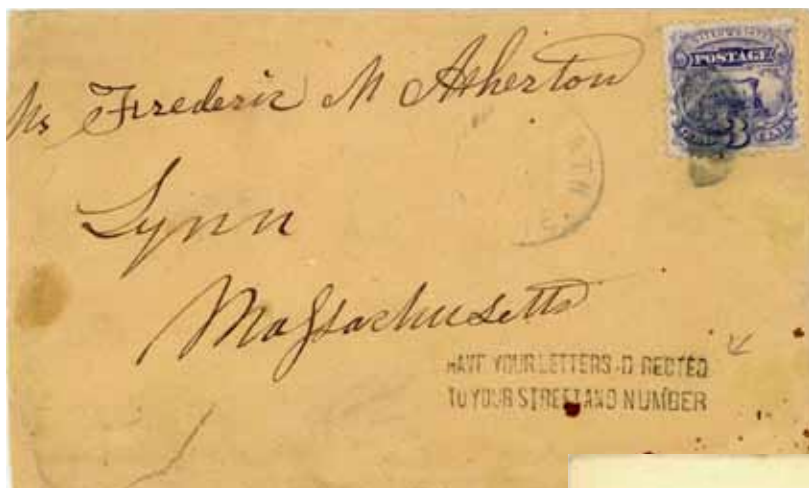 Ms Frederic M Atherton
Lynn
Massachusetts
POSTAGE
3
HAVE YOUR LETTERS DIRECTED
TO YOUR STREET AND NUMBER